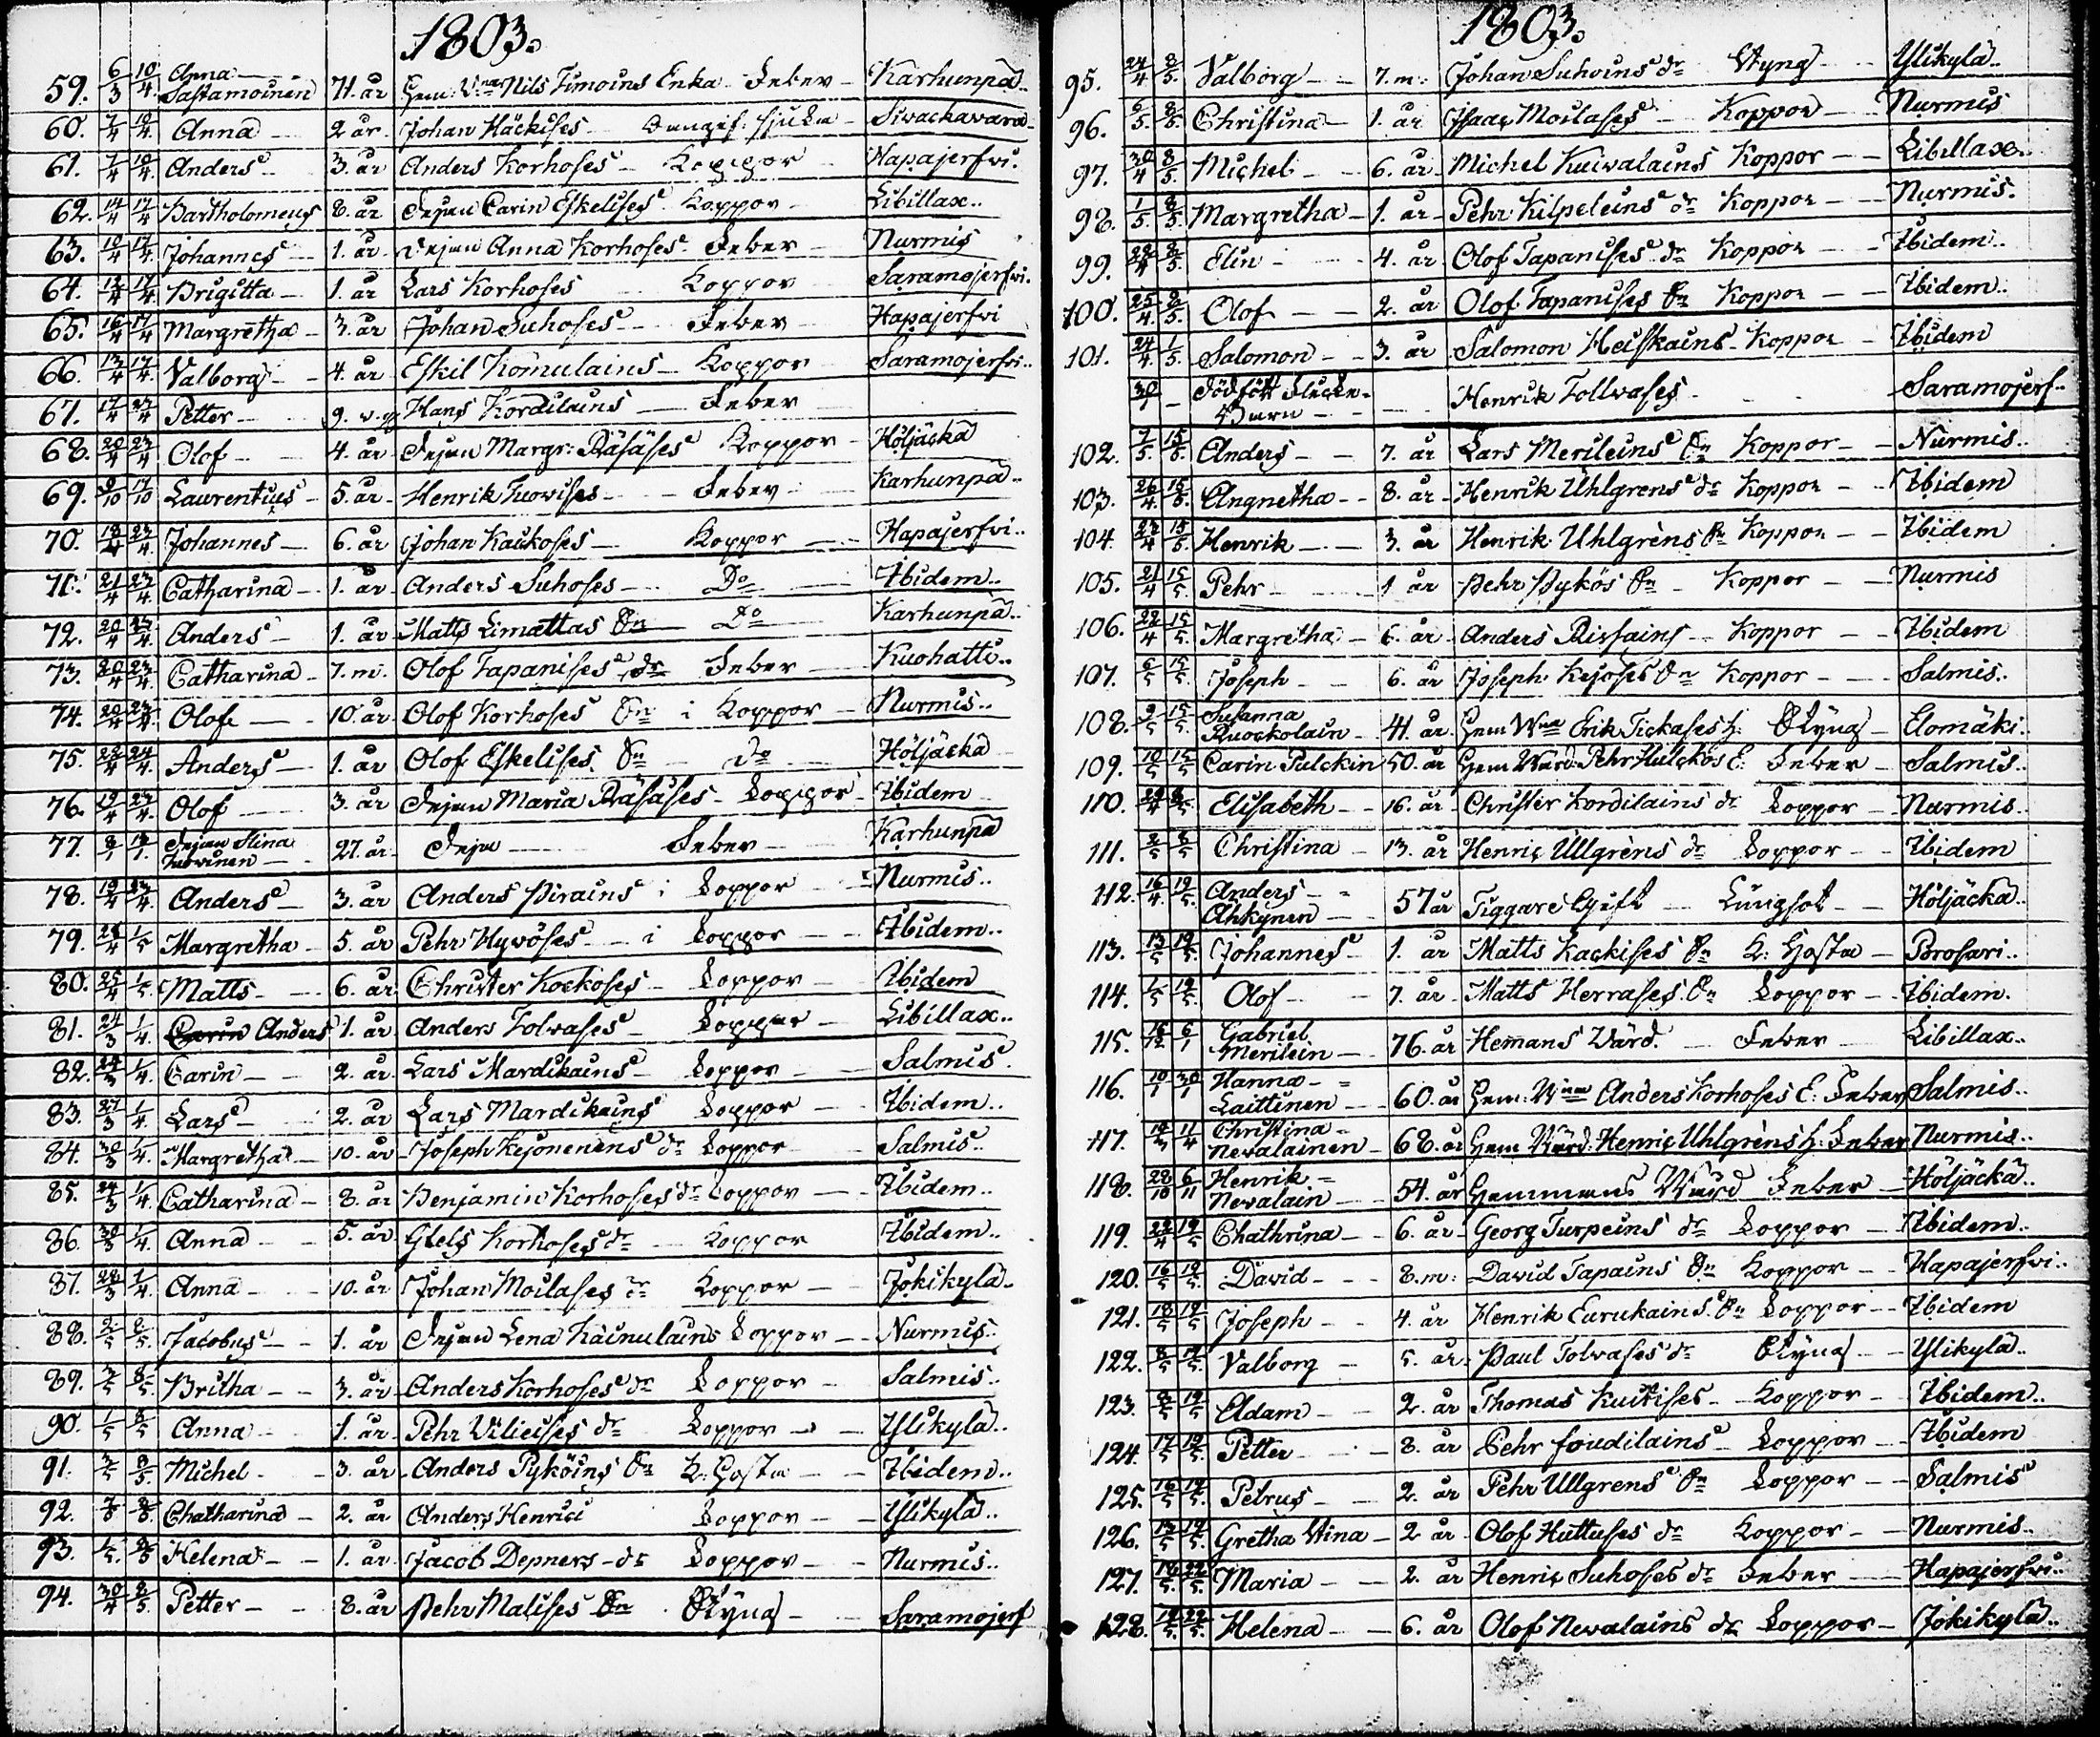 1803.
59. 6/3 10/4 Anna Sastamoinen 71. år Hem: Nils Timoins Enka Feber Karhunpä
60. 7/4 10/4 Anna 2. år Johan Häckises Sivackavara
61. 7/4 10/4 Anders 3. år Anders Korhoses Koppor Hapajerfvi.
62. 14/4 17/4 Bartholomeus 8. år Inhan Carin Eskelises Koppor Libillax..
63. 10/4 17/4 Johannes 1. år Anna Korhoses Feber Nurmis
64. 12/4 17/4 Brigitta 1. år Lars Korhoses Koppor Saramojerfvi.
65. 16/4 17/4 Margretha 3. år Johan Suhoses Feber Hapajerfvi
66. 13/4 17/4 Valborg 4. år Eskil Komulains Koppor Saramojerfvi..
67. 17/4 23/4 Petter 9. Hans Kordilains Feber
68. 20/4 23/4 Olof 4. år Margr: Räsäses Koppor Höljäckä
69. 9/10 17/10 Laurentius 5. år Henrik Tuovises Feber Karhunpä..
70. 18/4 23/4 Johannes 6. år Johan Kaukoses Koppor Hapajerfvi..
71. 21/4 23/4 Catharina 1. år Anders Suhoses Do Ibidem..
72. 20/4 23/4 Anders 1. år Matts Limattas Sn Do Karhunpä..
73. 20/4 23/4 Catharina 7. m. Olof Tapanises dr Feber Kuohatti..
74. 20/4 23/4 Olof 10. år Olof Korhoses Sn i Koppor Nurmis..
75. 22/4 24/4 Anders 1. år Olof Eskelises Sn do Höljäckä
76. 19/4 23/4 Olof 3. år Maria Räsäses Koppor Ibidem
77. Stina Tuovinen 27. år Feber Karhunpä
78. 19/4 23/4 Anders 3. år Anders Pirains i Koppor Nurmis..
79. 1/5 Margretha 5. år Pehr Hyvöses i Koppor Ibidem..
80. 25/4 1/5 Matts 6. år Christer Kockoses Koppor Ibidem
81. 24/3 1/4 Carin Anders 1. år Anders Tolvases Koppor Libillax..
82. 1/4 Carin 2. år Lars Mardikains Koppor Salmis.
83. 27/3 1/4 Lars 2. år Lars Mardikains Koppor Ibidem..
84. 30/3 1/4 Margretha 10. år Joseph Kejonenens dr Koppor Salmis..
85. 24/3 1/4 Catharina 8. år Benjamin Korhoses dr Koppor Ibidem..
86. 30/3 1/4 Anna 5. år Korhoses dr Koppor Ibidem..
87. 28/3 1/4 Anna 10. år Johan Moilases dr Koppor Jokikylä
88. Jacobus 1. år Lena Käinulains Koppor Nurmis..
89. Britha 3. år Anders Korhoses dr Koppor Salmis..
90. 1/5 8/5 Anna 1. år Pehr dr Koppor Ylikylä..
91. 3/5 8/5 Michel 3. år Anders Pyköins Sn K: Hosta Ibidem..
92. Chatharina 2. år Anders Henrici Koppor Ylikylä..
93. Helena 1. år Jacob Depners dr Koppor Nurmis..
94. 30/4 8/5 Petter 8. år Pehr Malises Sn Styng Saramojerf
1803.
95. 24/4 8/5 Valborg 7. m: Johan Suhoins dr Styng Ylikylä..
96. 6/5 8/5 Christina 1. år Isaac Moilases Koppor Nurmis
97. 30/4 8/5 Michel 6. år Michel Kuivalains Koppor Libillax..
98. 1/5 8/5 Margretha 1. år Pehr Kilpeleins dr Koppor Nurmis.
99. 28/4 8/5 Elin 4. år Olof Tapanises dr Koppor Ibidem..
100. 25/4 8/5 Olof 2. år Olof Tapanises Sn Koppor Ibidem..
101. 24/4 1/5 Salomon 3. år Salomon Heiskains Koppor Ibidem
Dödfödt Flicke Barn Henrik Tollvases Saramojerf..
102. 7/5 15/5 Anders 7. år Lars Merileins Sn Koppor Nurmis..
103. 26/4 15/5 Angnetha 8. år Henrik Uhlgrens dr Koppor Ibidem
104. 23/4 15/5 Henrik 3. år Henrik Uhlgrens Sn Koppor Ibidem
105. 21/4 15/5 Pehr 1 år Pehr Pykös Sn Koppor Nurmis
106. 22/4 15/5 Margretha 6. år Anders Rissains Koppor Ibidem
107. 6/5 15/5 Joseph 6. år Joseph Kejoses Sn Koppor Salmis..
108. 9/5 15/5 Susanna Ruockolain 41. år Hem Erik Tickases h: Styng Elomäki.
109. 10/5 15/5 Carin Pulckin 50. år Hem Värd Pehr Hulckos E: Feber Salmis..
110. Elisabeth 16. år Christer Kordilains dr Koppor Nurmis
111. Christina 13. år Henric Ullgrens dr Koppor Ibidem
112. 16/4 19/5 Anders Ahkynen 57 år Tiggare Gift Lungsot Höljäckä..
113. 13/5 19/5 Johannes 1. år Matts Kackises Sn K: Hosta Brosari..
114. 1/5 19/5 Olof 7. år Matts Herrases Sn Koppor Ibidem.
115. 6/1 Gabriel Merilein 76. år Hemans Värd. Feber Libillax..
116. 30/1 Hanna Laittinen 60. år Hem: Anders Korhoses E: Feber Salmis..
117. 11/4 Christina Nevalainen 68. år Hem Värd: Henric Uhlgrens h: Feber Nurmis..
118. 28/10 6/11 Henrik Nevalain 54. år Hemmans Värd Feber Höljäckä..
119. 22/4 19/5 Chathrina 6. år Georg Turpeins dr Koppor Ibidem..
120. 16/5 19/5 David 8. m: David Tapains Sn Koppor Hapajerfvi..
121. 18/5 19/5 Joseph 4. år Henrik Eurukains Sn Koppor Ibidem
122. 8/5 19/5 Valborg 5. år: Paul Tolvases dr Styng Ylikylä..
123. 19/5 Adam 2. år Thomas Kuitises Koppor Ibidem..
124. 17/5 19/5 Petter 8. år Pehr Koppor Ibidem
125. 16/5 19/5 Petrus 2. år Pehr Ullgrens Sn Koppor Salmis
126. 13/5 19/5 Gretha Stina 2 år Olof Huttuses dr Koppor Nurmis..
127. 18/5 22/5 Maria 2. år Henric Suhoses dr Feber Hapajerfvi..
128. 22/5 Helena 6. år Olof Nevalains dr Koppor Jokikylä..